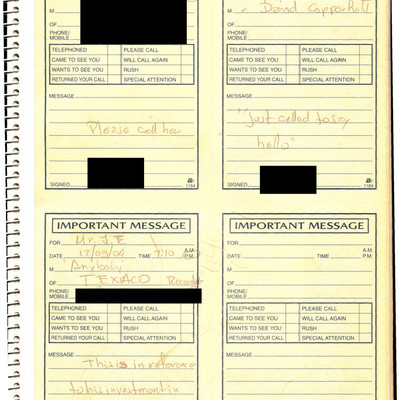 M
OF
PHONE/
MOBILE
TELEPHONED PLEASE CALL
CAME TO SEE YOU WILL CALL AGAIN
WANTS TO SEE YOU RUSH
RETURNED YOUR CALL SPECIAL ATTENTION
MESSAGE
Please call her
SIGNED
1184
M r. David Copperfield
OF
PHONE/
MOBILE
TELEPHONED PLEASE CALL
CAME TO SEE YOU WILL CALL AGAIN
WANTS TO SEE YOU RUSH
RETURNED YOUR CALL SPECIAL ATTENTION
MESSAGE
"just called to say
hello"
SIGNED
1184
IMPORTANT MESSAGE
FOR Mr. J.E
A.M.
DATE 12/09/04 TIME 7:10 P.M.
M Anybody
OF TEXACO
PHONE/
MOBILE
TELEPHONED PLEASE CALL
CAME TO SEE YOU WILL CALL AGAIN
WANTS TO SEE YOU RUSH
RETURNED YOUR CALL SPECIAL ATTENTION
MESSAGE
This is in reference
to his investment in
IMPORTANT MESSAGE
FOR
A.M.
DATE TIME P.M.
M
OF
PHONE/
MOBILE
TELEPHONED PLEASE CALL
CAME TO SEE YOU WILL CALL AGAIN
WANTS TO SEE YOU RUSH
RETURNED YOUR CALL SPECIAL ATTENTION
MESSAGE